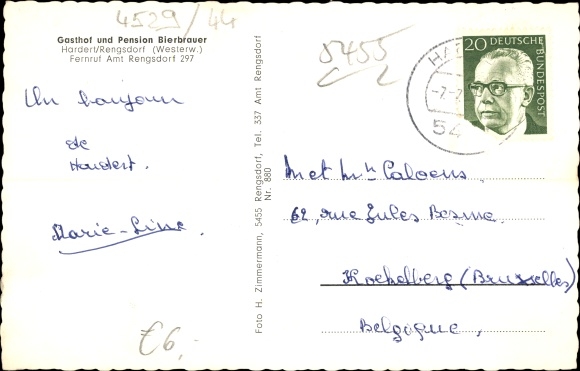 4529/44
Gasthof und Pension Bierbrauer
Hardert/Rengsdorf (Westerw.)
Fernruf Amt Rengsdorf 297
5455
20 DEUTSCHE
BUNDESPOST
54
Un bonjour
de
Hardert.
Marie-Lise.
Foto H. Zimmermann, 5455 Rengsdorf, Tel. 337 Amt Rengsdorf
Nr. 880
Caloens
62, rue Jules Besme
Koekelberg (Bruxelles)
Belgique,
€6,-